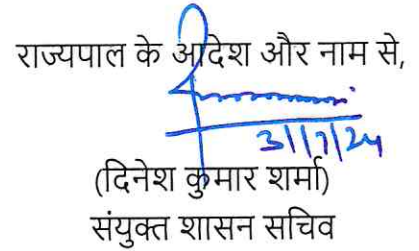 राज्यपाल के आदेश और नाम से,
31/7/24
(दिनेश कुमार शर्मा)
संयुक्त शासन सचिव